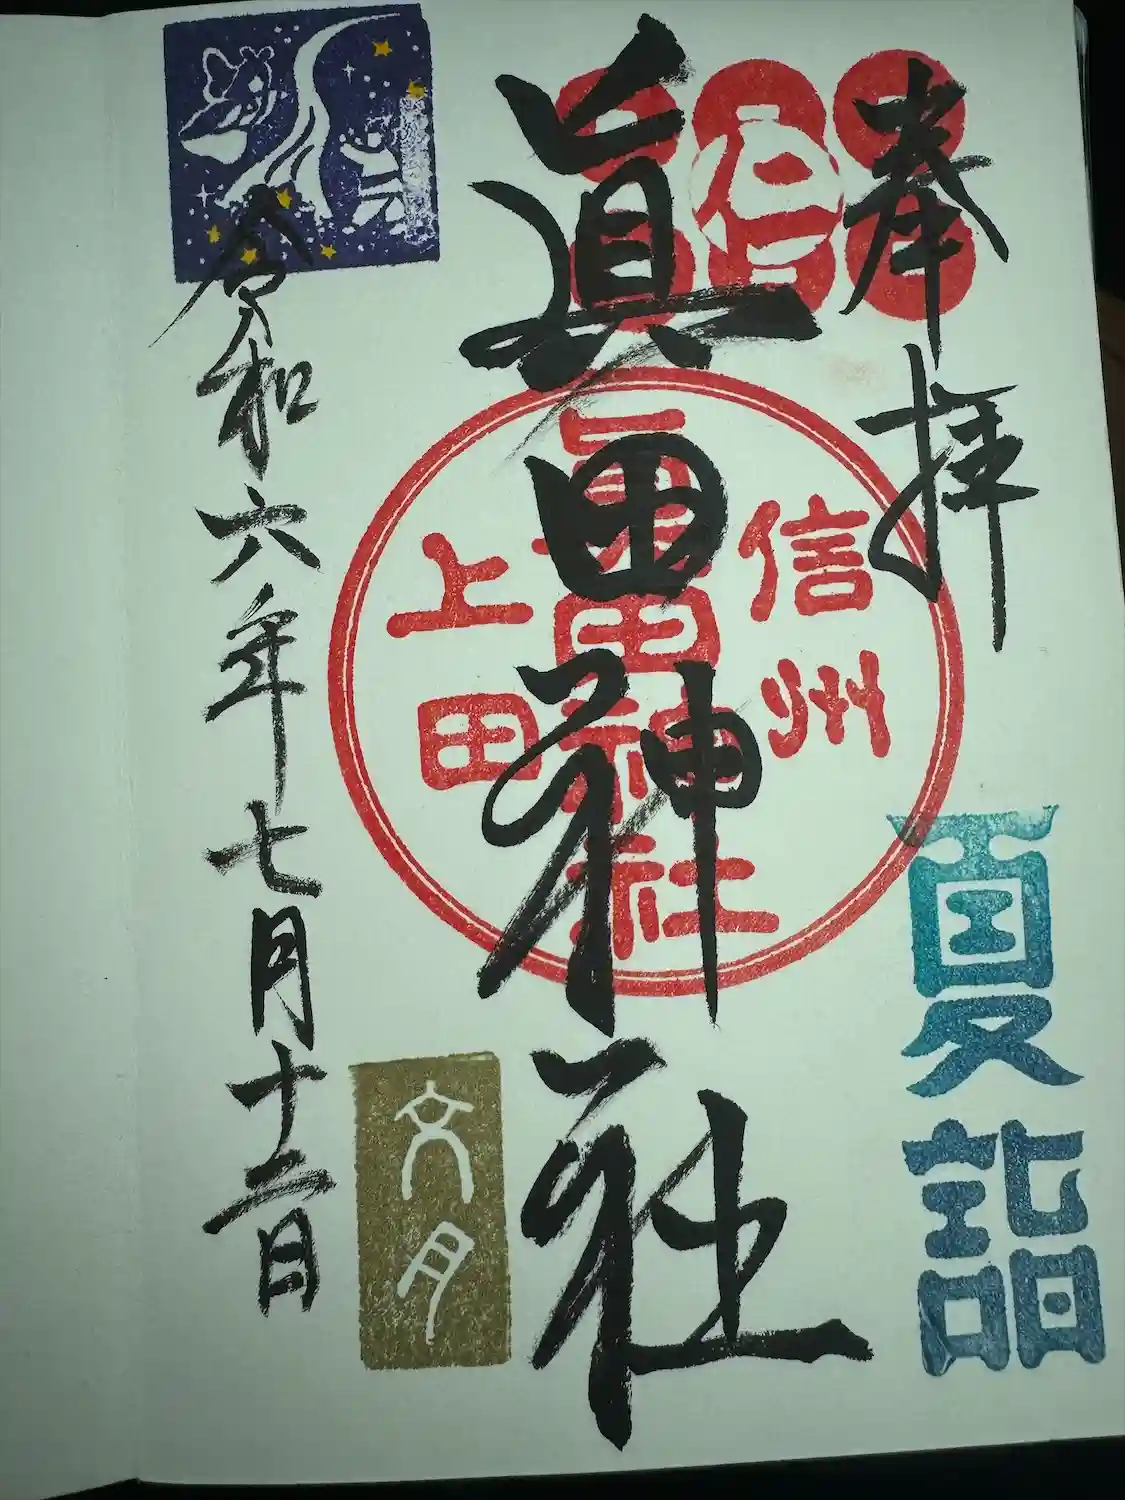 奉拝
夏詣
仁
眞田神社
信州
眞田神社
上田
文月
令和六年七月十二日